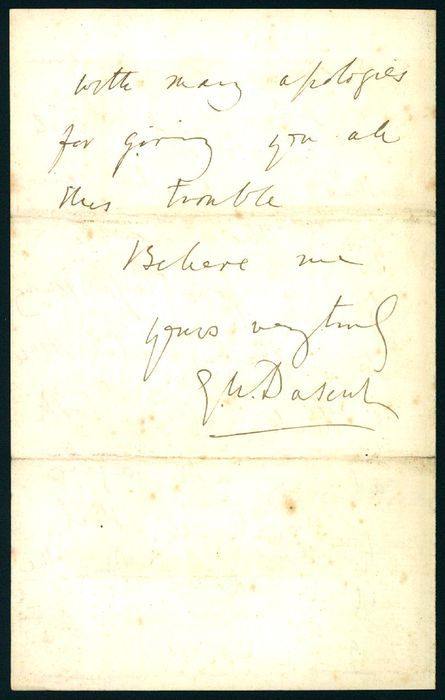 with many apologies
for giving you all
this trouble
Believe me
yours very truly
G. W. Dasent